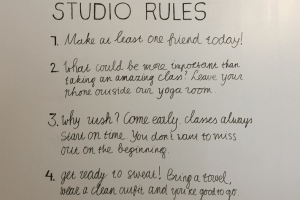 STUDIO RULES
1. Make at least one friend today!
2. What could be more important than
taking an amazing class? Leave your
phone outside our yoga room.
3. Why rush? Come early, classes always
start on time. You don't want to miss
out on the beginning.
4. get ready to sweat! Bring a towel,
wear a clean outfit and you're good to go.